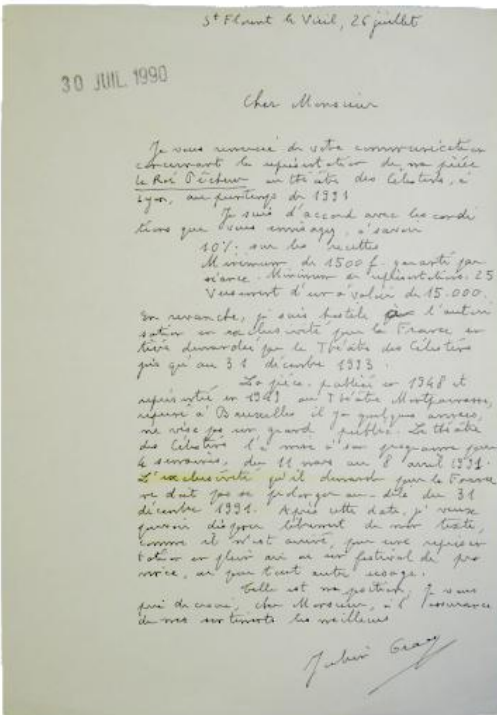 St Florent le Vieil, 26 juillet
30 JUIL. 1990
Cher Monsieur
Je vous remercie de votre communication
concernant la représentation de ma pièce
Le Roi Pêcheur au théâtre des Célestins, à
Lyon, au printemps de 1991
Je suis d'accord avec les condi
tions que vous envisagez, à savoir
10% sur les recettes
Minimum de 1500 f. garanti par
séance. Minimum de représentations. 25
Versement d'un à valoir de 15.000.
En revanche, je suis hostile à l'autori
sation en exclusivité pour la France en
tière demandée par le Théâtre des Célestins
jusqu'au 31 décembre 1993.
La pièce, publiée en 1948 et
représentée en 1949 au Théâtre Montparnasse,
reprise à Bruxelles il y a quelques années,
ne vise pas un grand public. Le théâtre
des Célestins l'a mise à son programme pour
4 semaines, du 11 mars au 8 avril 1991.
L'exclusivité qu'il demande pour la France
ne doit pas se prolonger au-delà du 31
décembre 1991. Après cette date, je veux
pouvoir disposer librement de mon texte,
comme il m'est arrivé, pour une représen
tation en plein air ou un festival de pro
vince, ou pour tout autre usage.
Telle est ma position. Je vous
prie de croire, cher Monsieur, à l'assurance
de mes sentiments les meilleurs
Julien Gracq